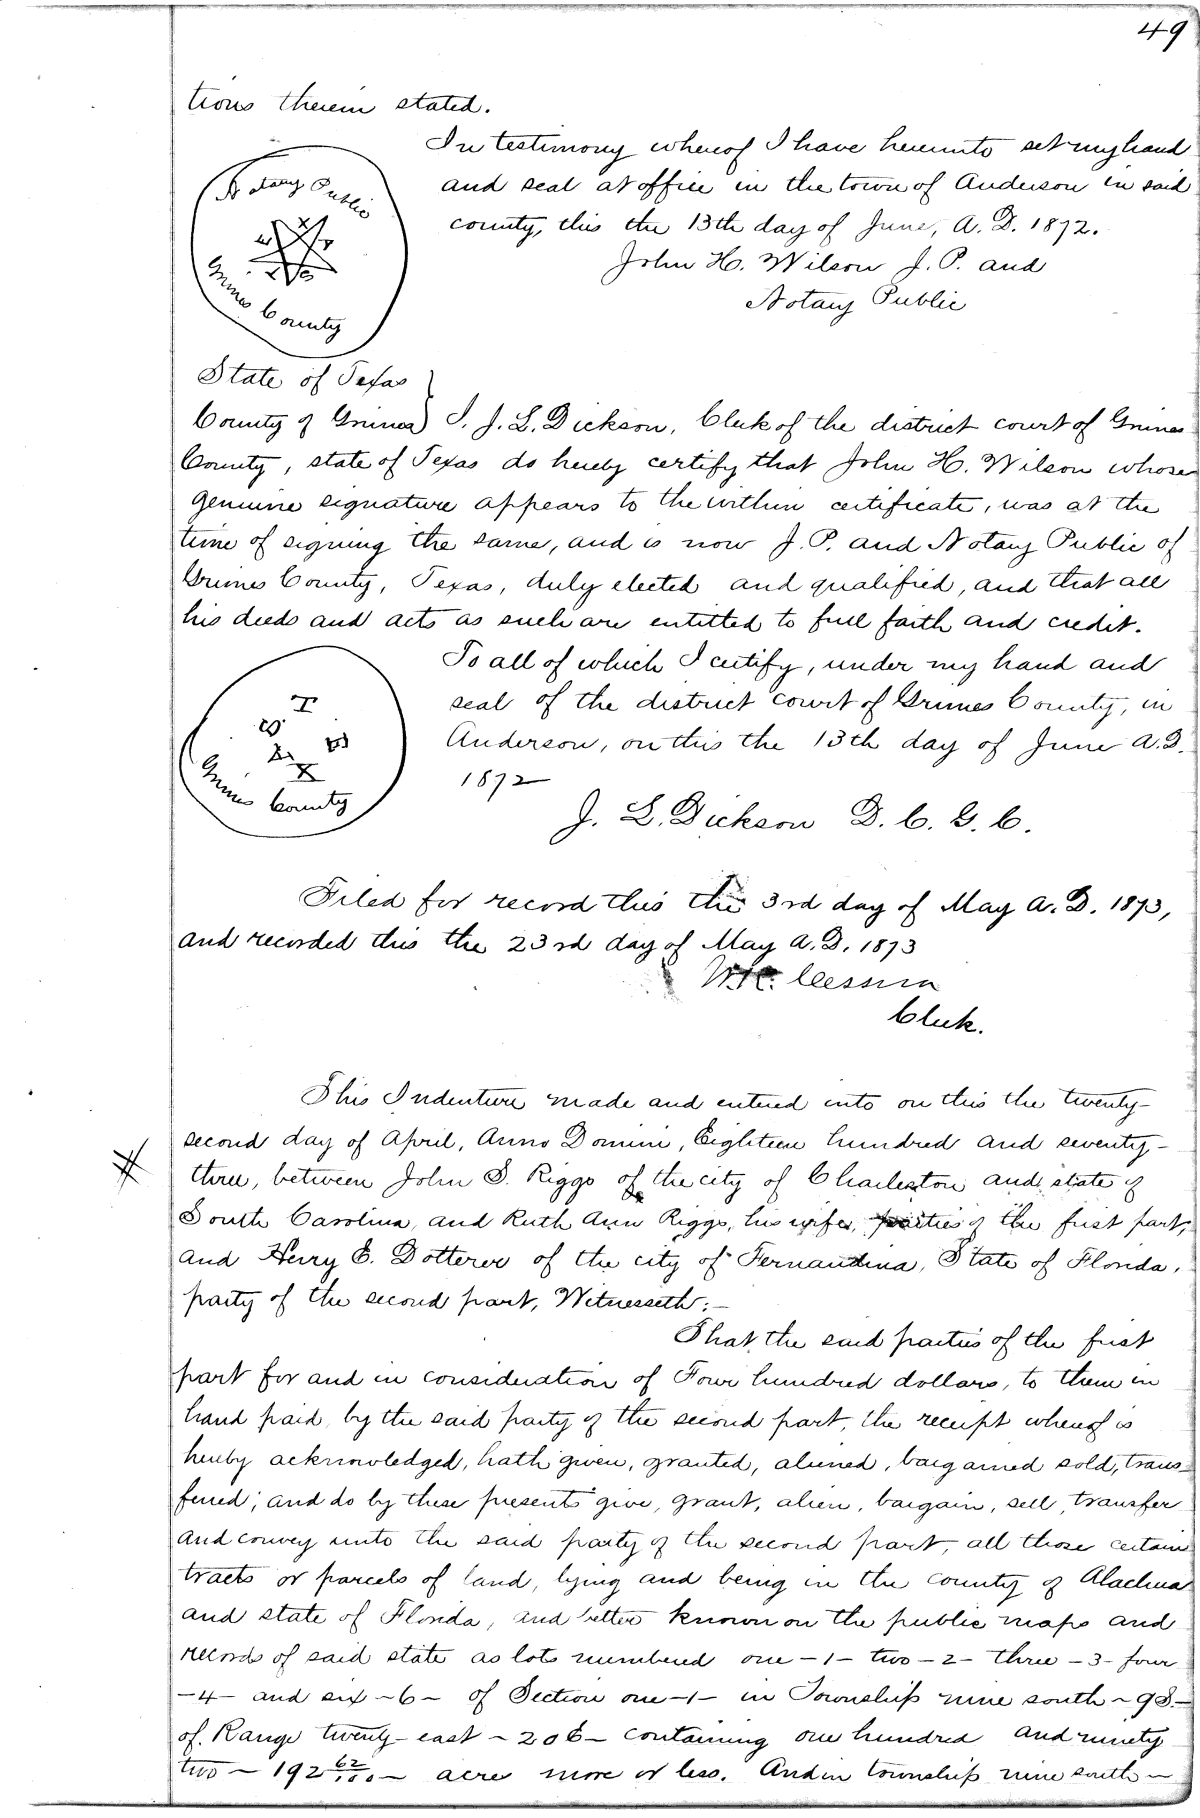 49
tions therein stated.
In testimony whereof I have hereunto set my hand
and seal at office in the town of Anderson in said
county, this the 13th day of June, A.D. 1872.
John H. Wilson J.P. and
Notary Public
Notary Public
T E X A S
Grimes County
State of Texas
County of Grimes } I, J. L. Dickson, Clerk of the district court of Grimes
County, state of Texas do hereby certify that John H. Wilson whose
genuine signature appears to the within certificate, was at the
time of signing the same, and is now J. P. and Notary Public of
Grimes County, Texas, duly elected and qualified, and that all
his deeds and acts as such are entitled to full faith and credit.
To all of which I certify, under my hand and
seal of the district court of Grimes County, in
Anderson, on this the 13th day of June A.D.
1872
T E X A S
Grimes County
J. L. Dickson D. C. G. C.
Filed for record this the 3rd day of May A.D. 1873,
and recorded this the 23rd day of May A.D. 1873
Cessna
Clerk.
This Indenture made and entered into on this the twenty-
second day of April, Anno Domini, Eighteen hundred and seventy-
three, between John S. Riggs of the city of Charleston and state of
South Carolina, and Ruth Ann Riggs, his wife, parties of the first part,
and Henry E. Dotterer of the city of Fernandina, State of Florida,
party of the second part, Witnesseth:-
That the said parties of the first
part for and in consideration of Four hundred dollars, to them in
hand paid by the said party of the second part, the receipt whereof is
hereby acknowledged, hath given, granted, aliened, bargained sold, trans-
ferred; and do by these presents give, grant, alien, bargain, sell, transfer
and convey unto the said party of the second part, all those certain
tracts or parcels of land, lying and being in the county of Alachua
and state of Florida, and better known on the public maps and
records of said state as lots numbered one -1- two -2- three -3- four
-4- and six -6- of Section one -1- in Township nine south - 9S.-
of Range twenty-east - 20E - containing one hundred and ninety
two - 192 62/100 - acres more or less. And in township nine south -